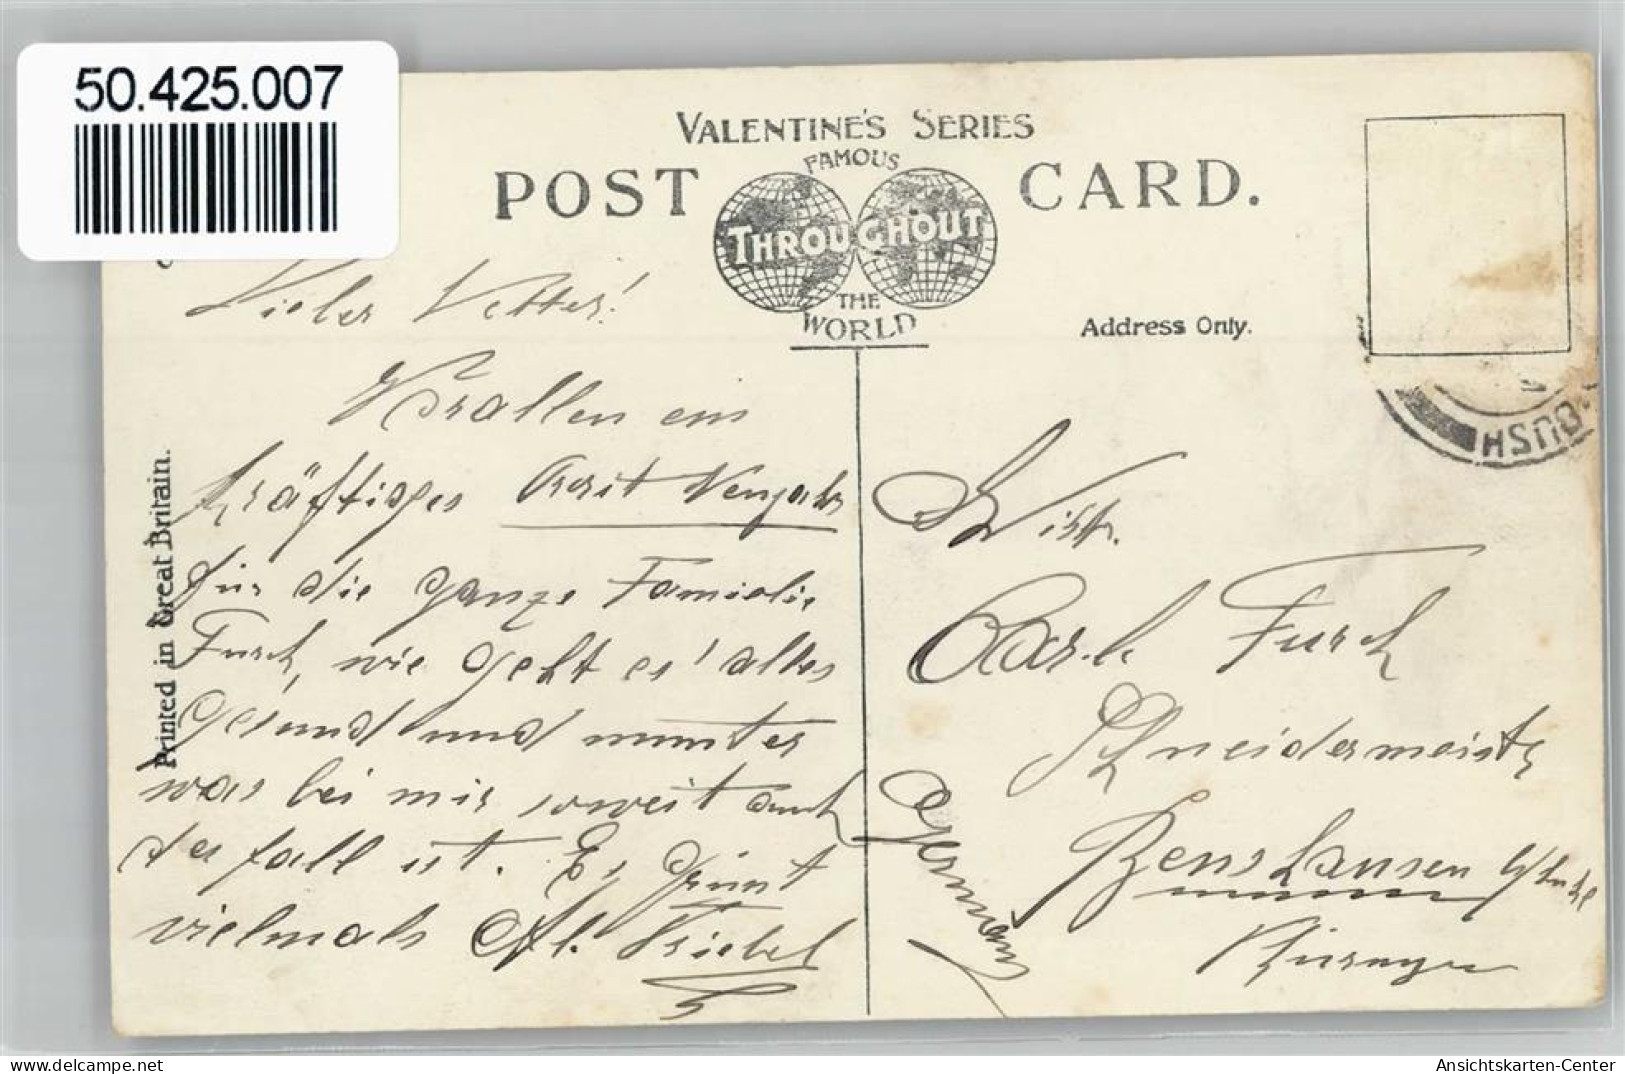 50.425.007
VALENTINE'S SERIES
POST CARD.
FAMOUS
THROUGHOUT
THE
WORLD
Address Only.
Printed in Great Britain.
Lieber Vetter!
Vorallen ein
kräftiges Prosit Neujahr
für die ganze Familie
Fursch, wie geht es' alles
gesund und munter
was bei mir soweit auch
der fall ist. Es grüsst
vielmals Triebel
Carl Fursch
Schneidermeister
Benshausen
Thüringen
Germany
BUSH
Ansichtskarten-Center